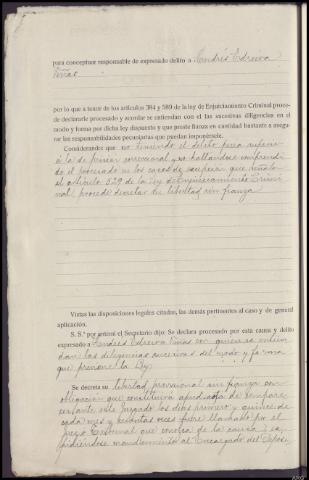 para conceptuar responsable de expresado delito a Andrés Edreira
Viñas
por lo que a tenor de los artículos 384 y 589 de la ley de Enjuiciamiento Criminal proce-
de declararle procesado y acordar se entiendan con él las sucesivas diligencias en el
modo y forma por dicha ley dispuesto y que preste fianza en cantidad bastante a asegu-
rar las responsabilidades pecuniarias que puedan imponérsele.
Considerando que no teniendo el delito pena superior
á la de prisión correccional y no hallándose comprendi-
do el procesado en los casos de excepción que señala
el artículo 529 de la Ley de Enjuiciamiento Crimi-
nal, procede decretar su libertad sin fianza
Vistas las disposiciones legales citadas, las demás pertinentes al caso y de general
aplicación.
S. S.ª por ante mí el Secretario dijo: Se declara procesado por esta causa y delito
expresado a Andrés Edreira Viñas con quien se entien-
dan las diligencias sucesivas del modo y forma
que previene la Ley.
Se decreta su libertad provisional sin fianza con
obligación que constituirá apud acta de compare-
cer ante este Juzgado los días primero y quince de
cada mes y cuantas veces fuere llamado por el
Juez o Tribunal que conozca de la causa
mandamiento al Encargado del Depósi-